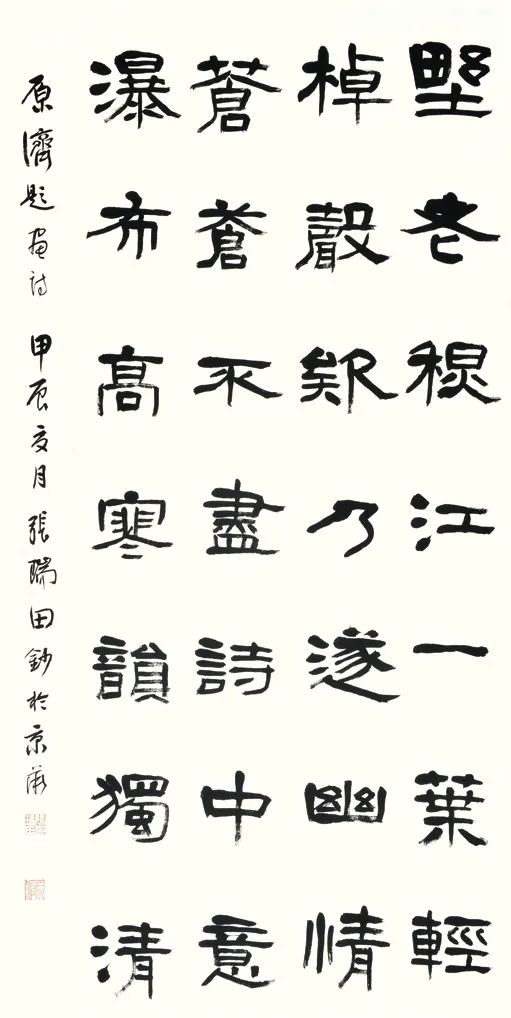 野老江一葉輕
棹聲欸乃遂幽情
蒼蒼不盡詩中意
瀑布高寒韻獨清
原濟題畫詩 甲辰夏月張瑞田鈔於京華